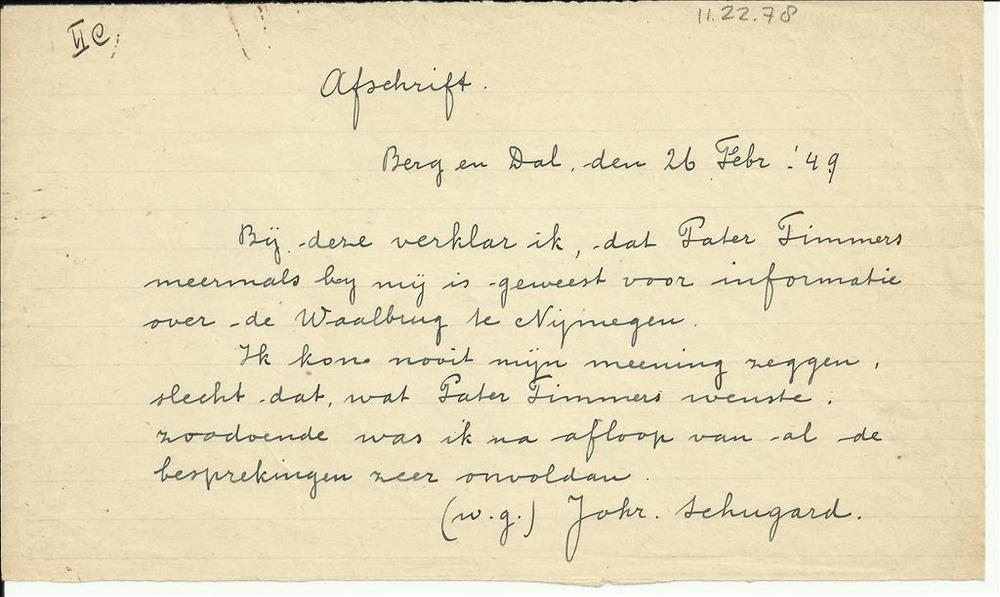 VI C
11.22.78
Afschrift.
Berg en Dal, den 26 Febr. '49
Bij deze verklar ik, dat Pater Timmers
meermals by mij is geweest voor informatie
over de Waalbrug te Nijmegen.
Ik kon nooit mijn meening zeggen,
slecht dat, wat Pater Timmers wenste.
zoodoende was ik na afloop van al de
besprekingen zeer onvoldan.
(w.g.) Johr. Schugard.